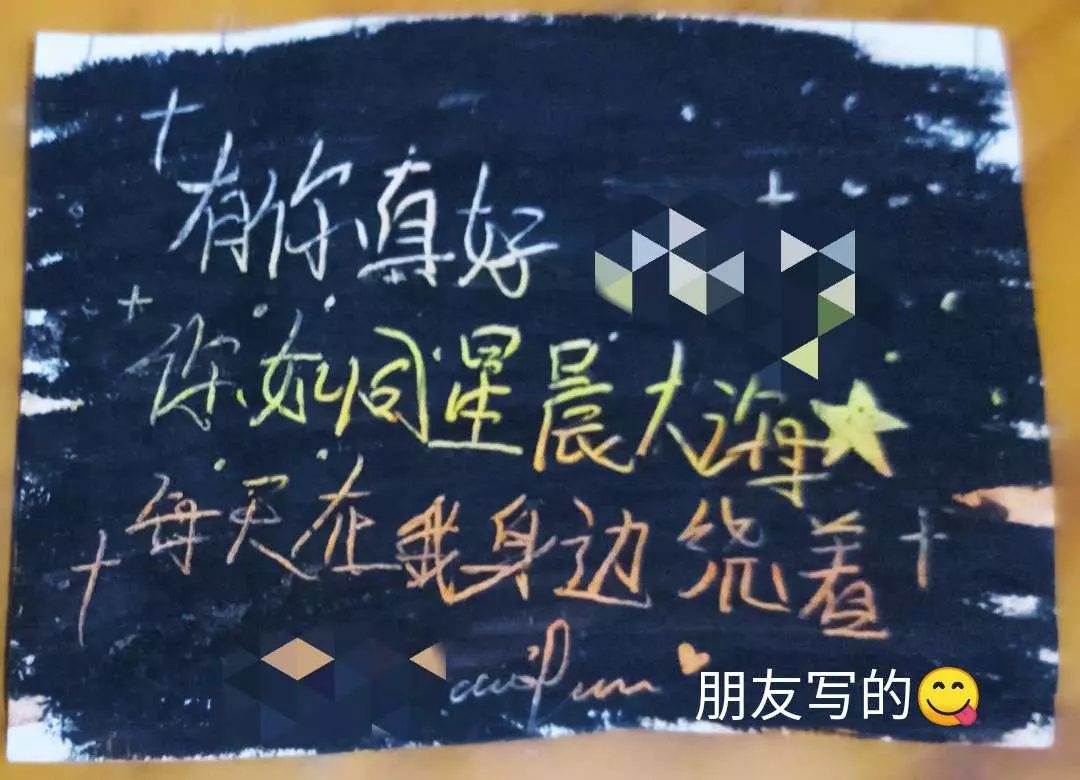 有你真好
你如同星晨大海
每天在我身边绕着
朋友写的😋